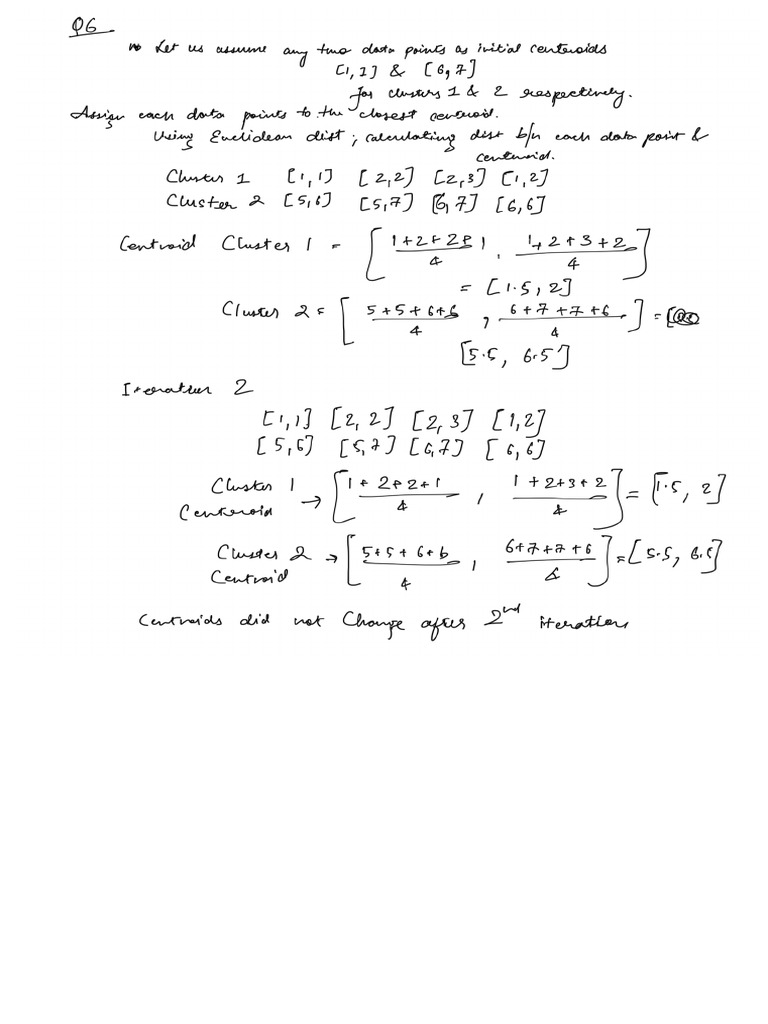 Q6
Let us assume any two data points as initial centeroids
[1,1] & [6,7]
for clusters 1 & 2 respectively.
Assign each data points to the closest centroid.
Using Euclidean dist; calculating dist b/n each data point &
centeroid.
Cluster 1 [1,1] [2,2] [2,3] [1,2]
Cluster 2 [5,6] [5,7] [6,7] [6,6]
Centroid Cluster 1 = [ (1+2+2+1)/4 , (1+2+3+2)/4 ]
= [1.5, 2]
Cluster 2 = [ (5+5+6+6)/4 , (6+7+7+6)/4 ] =
[5.5, 6.5]
Iteration 2
[1,1] [2,2] [2,3] [1,2]
[5,6] [5,7] [6,7] [6,6]
Cluster 1 Centeroid → [ (1+2+2+1)/4 , (1+2+3+2)/4 ] = [1.5, 2]
Cluster 2 Centroid → [ (5+5+6+6)/4 , (6+7+7+6)/4 ] = [5.5, 6.5]
Centroids did not Change after 2nd iteration